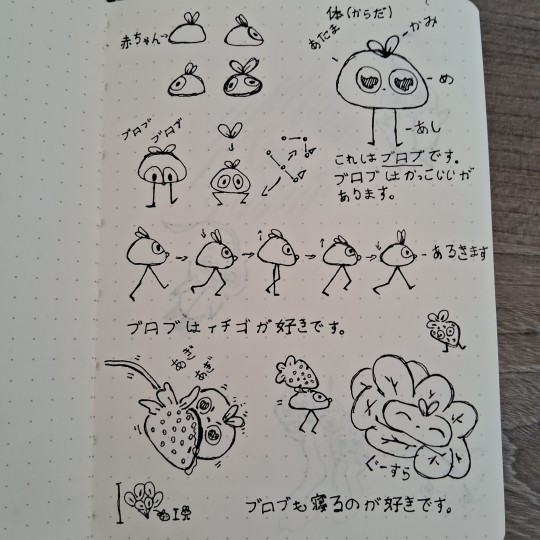 体(からだ)
赤ちゃん
あたま
かみ
め
あし
ブロブ ブロブ
これはブロブです。
ブロブはかっこいいが
あります。
あるきます
ブロブはイチゴが好きです。
あぎ
あぎ
ぐーすら
ブロブも寝るのが好きです。